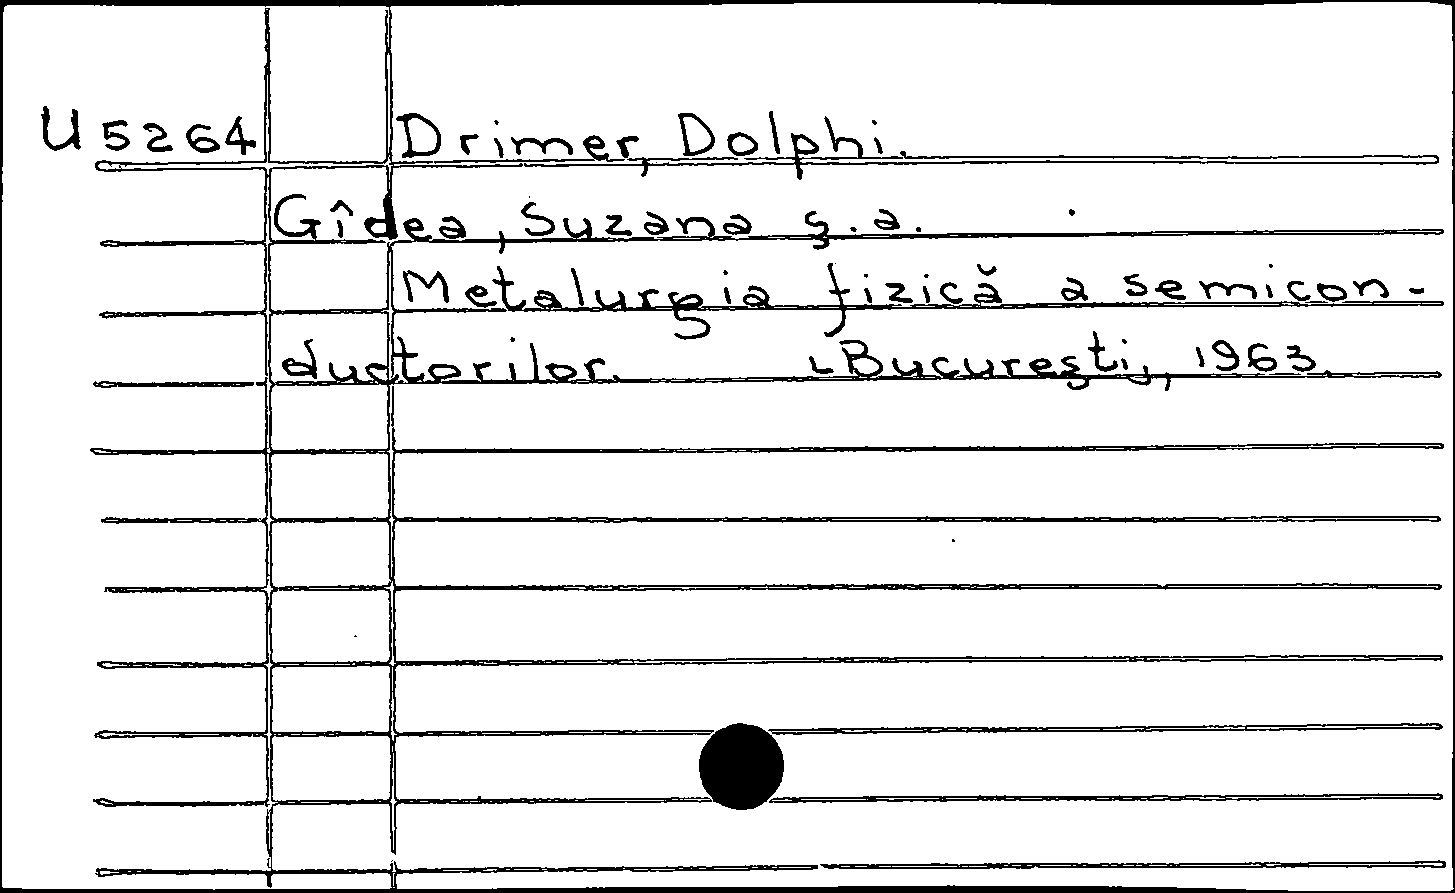 U 5264 Drimer, Dolphi.
Gîdea, Suzana ş.a.
Metalurgia fizică a semicon-
ductorilor. [Bucureşti], 1963.